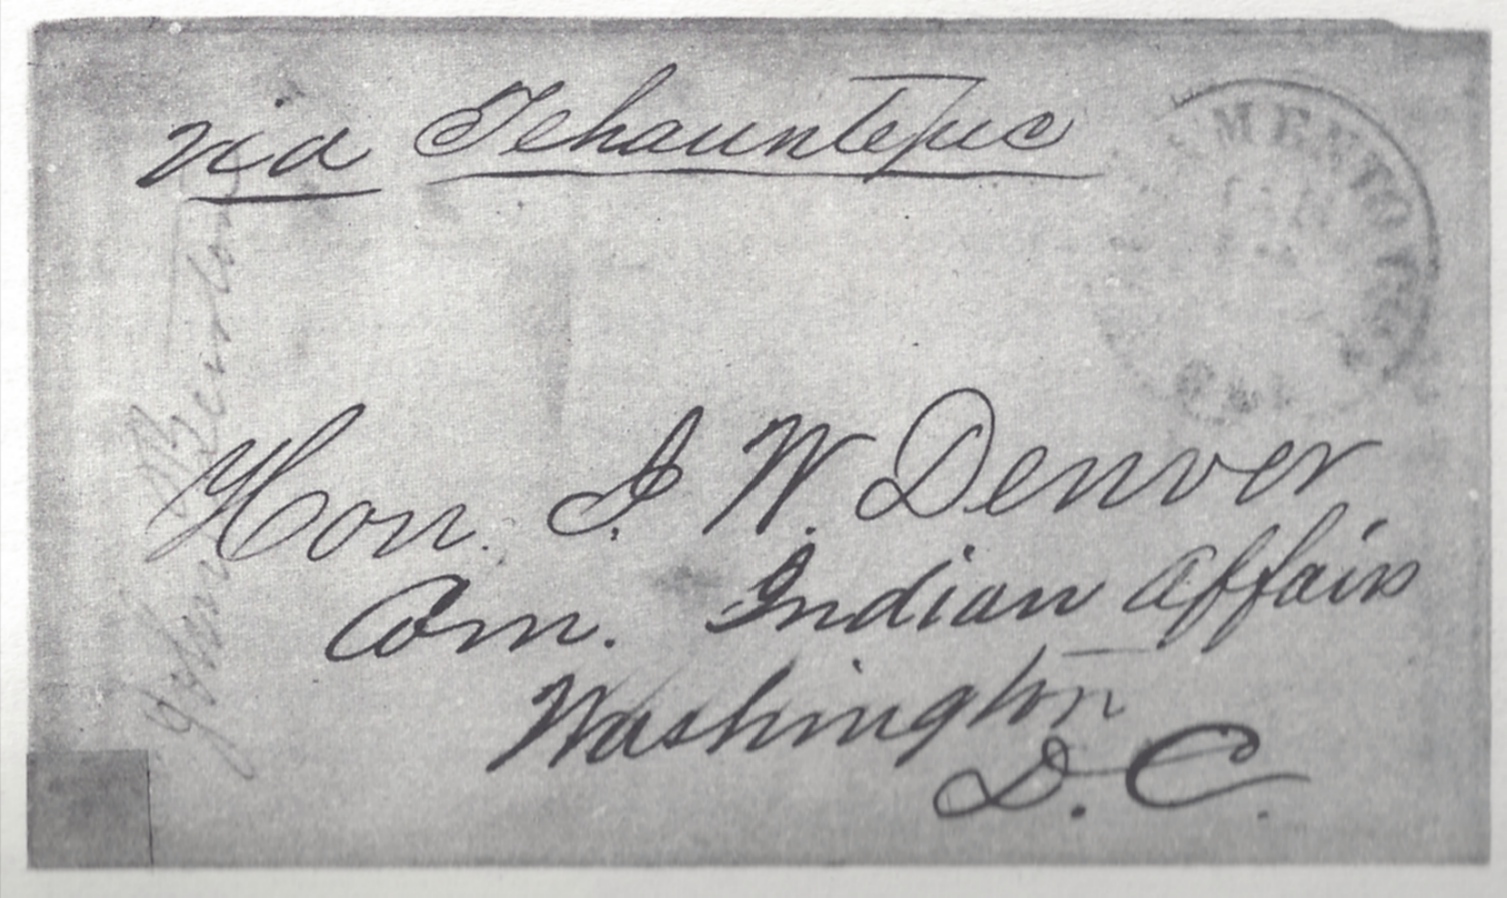 via Tehauntepec
MENTO
Hon. J. W. Denver
Com. Indian Affairs
Washington
D. C.
John